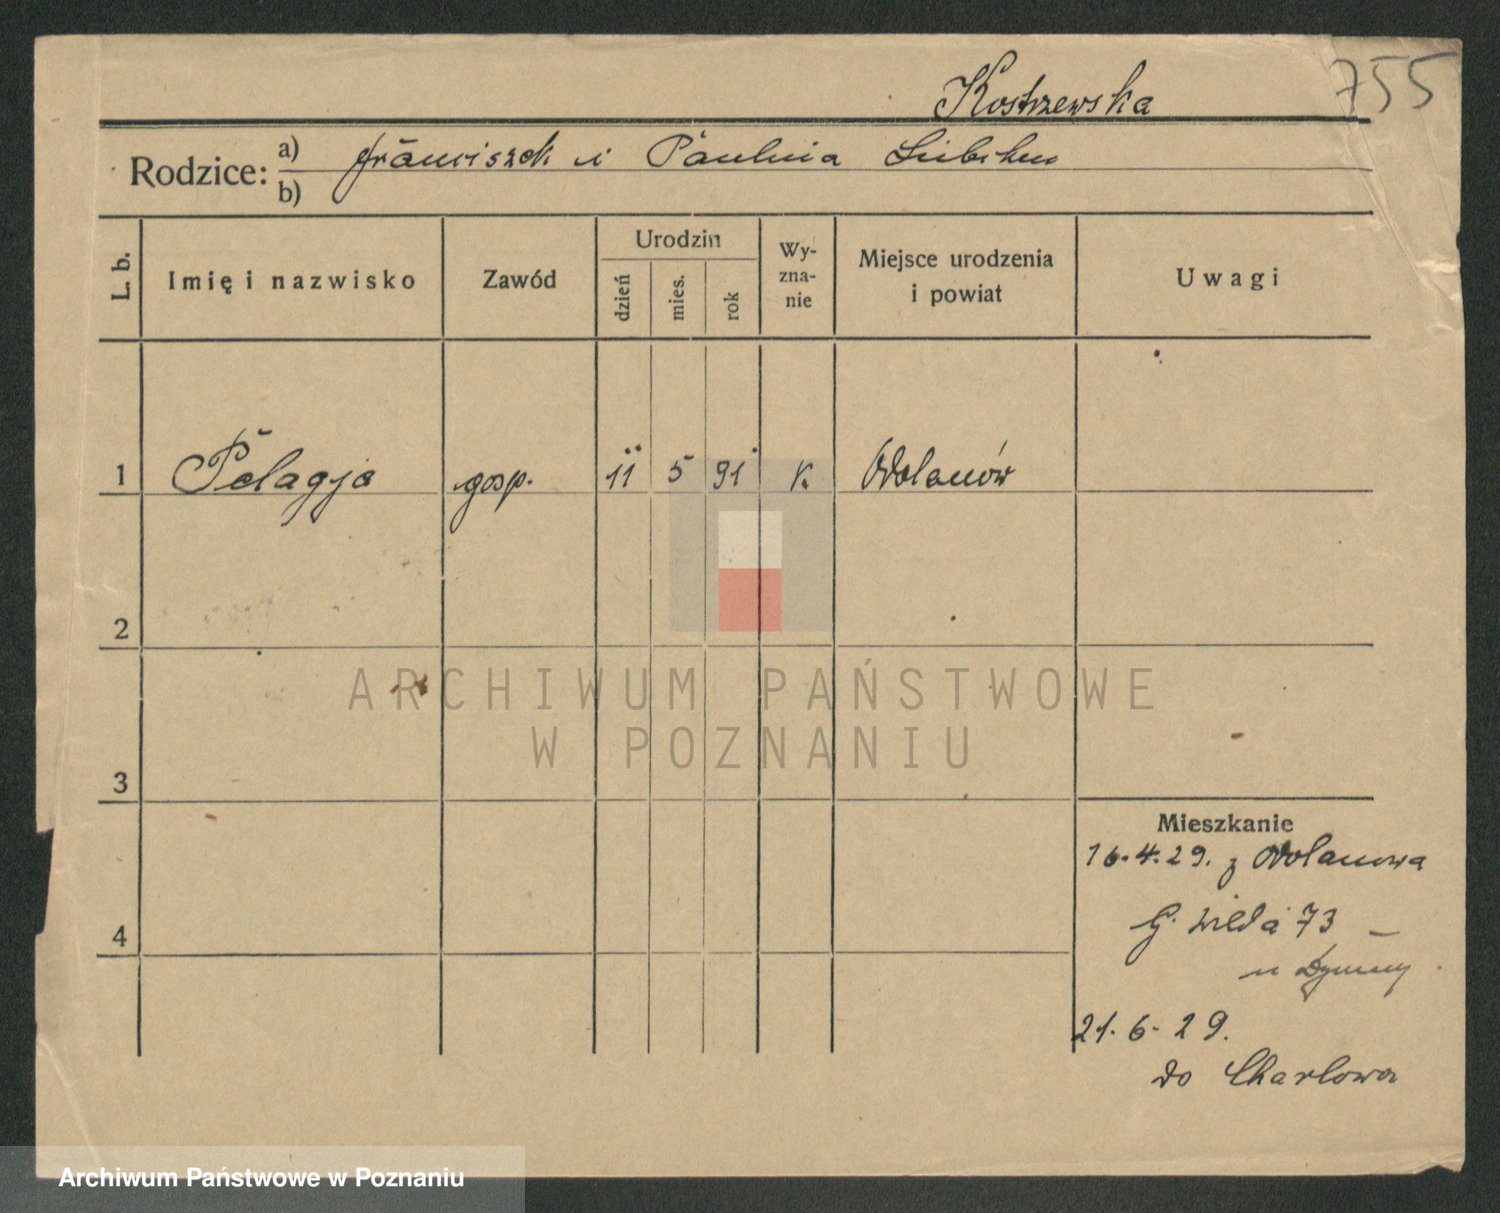 Kostrzewska 755
Rodzice: a) Franciszek i Paulina
b)
L. b. Imię i nazwisko Zawód Urodzin dzień mies. rok Wy-zna-nie Miejsce urodzenia i powiat Uwagi
1 Pelagja gosp. 11 5 91 K. Odolanów
2
ARCHIWUM PAŃSTWOWE
W POZNANIU
3
Mieszkanie
16.4.29. z Odolanowa
4
G. Wilda 73 –
u Dymny
21.6.29.
do Charlowa
Archiwum Państwowe w Poznaniu